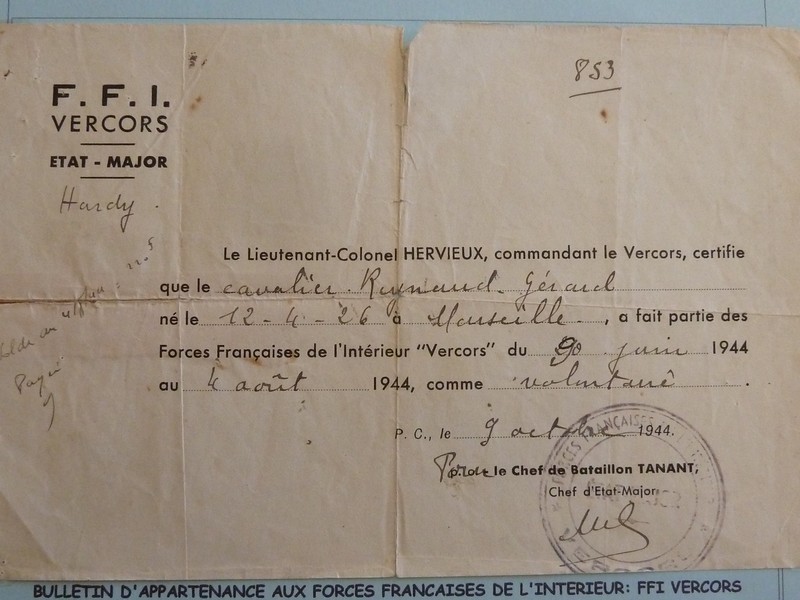 853
F. F. I.
VERCORS
ETAT - MAJOR
Hardy.
Le Lieutenant-Colonel HERVIEUX, commandant le Vercors, certifie
que le cavalier Gérard
né le 12-4-26 à Marseille, a fait partie des
Forces Françaises de l'Intérieur "Vercors" du juin 1944
au 4 août 1944, comme volontaire.
P. C., le 9 octobre 1944.
le Chef de Bataillon TANANT,
Chef d'Etat-Major
FORCES FRANÇAISES
BULLETIN D'APPARTENANCE AUX FORCES FRANCAISES DE L'INTERIEUR: FFI VERCORS